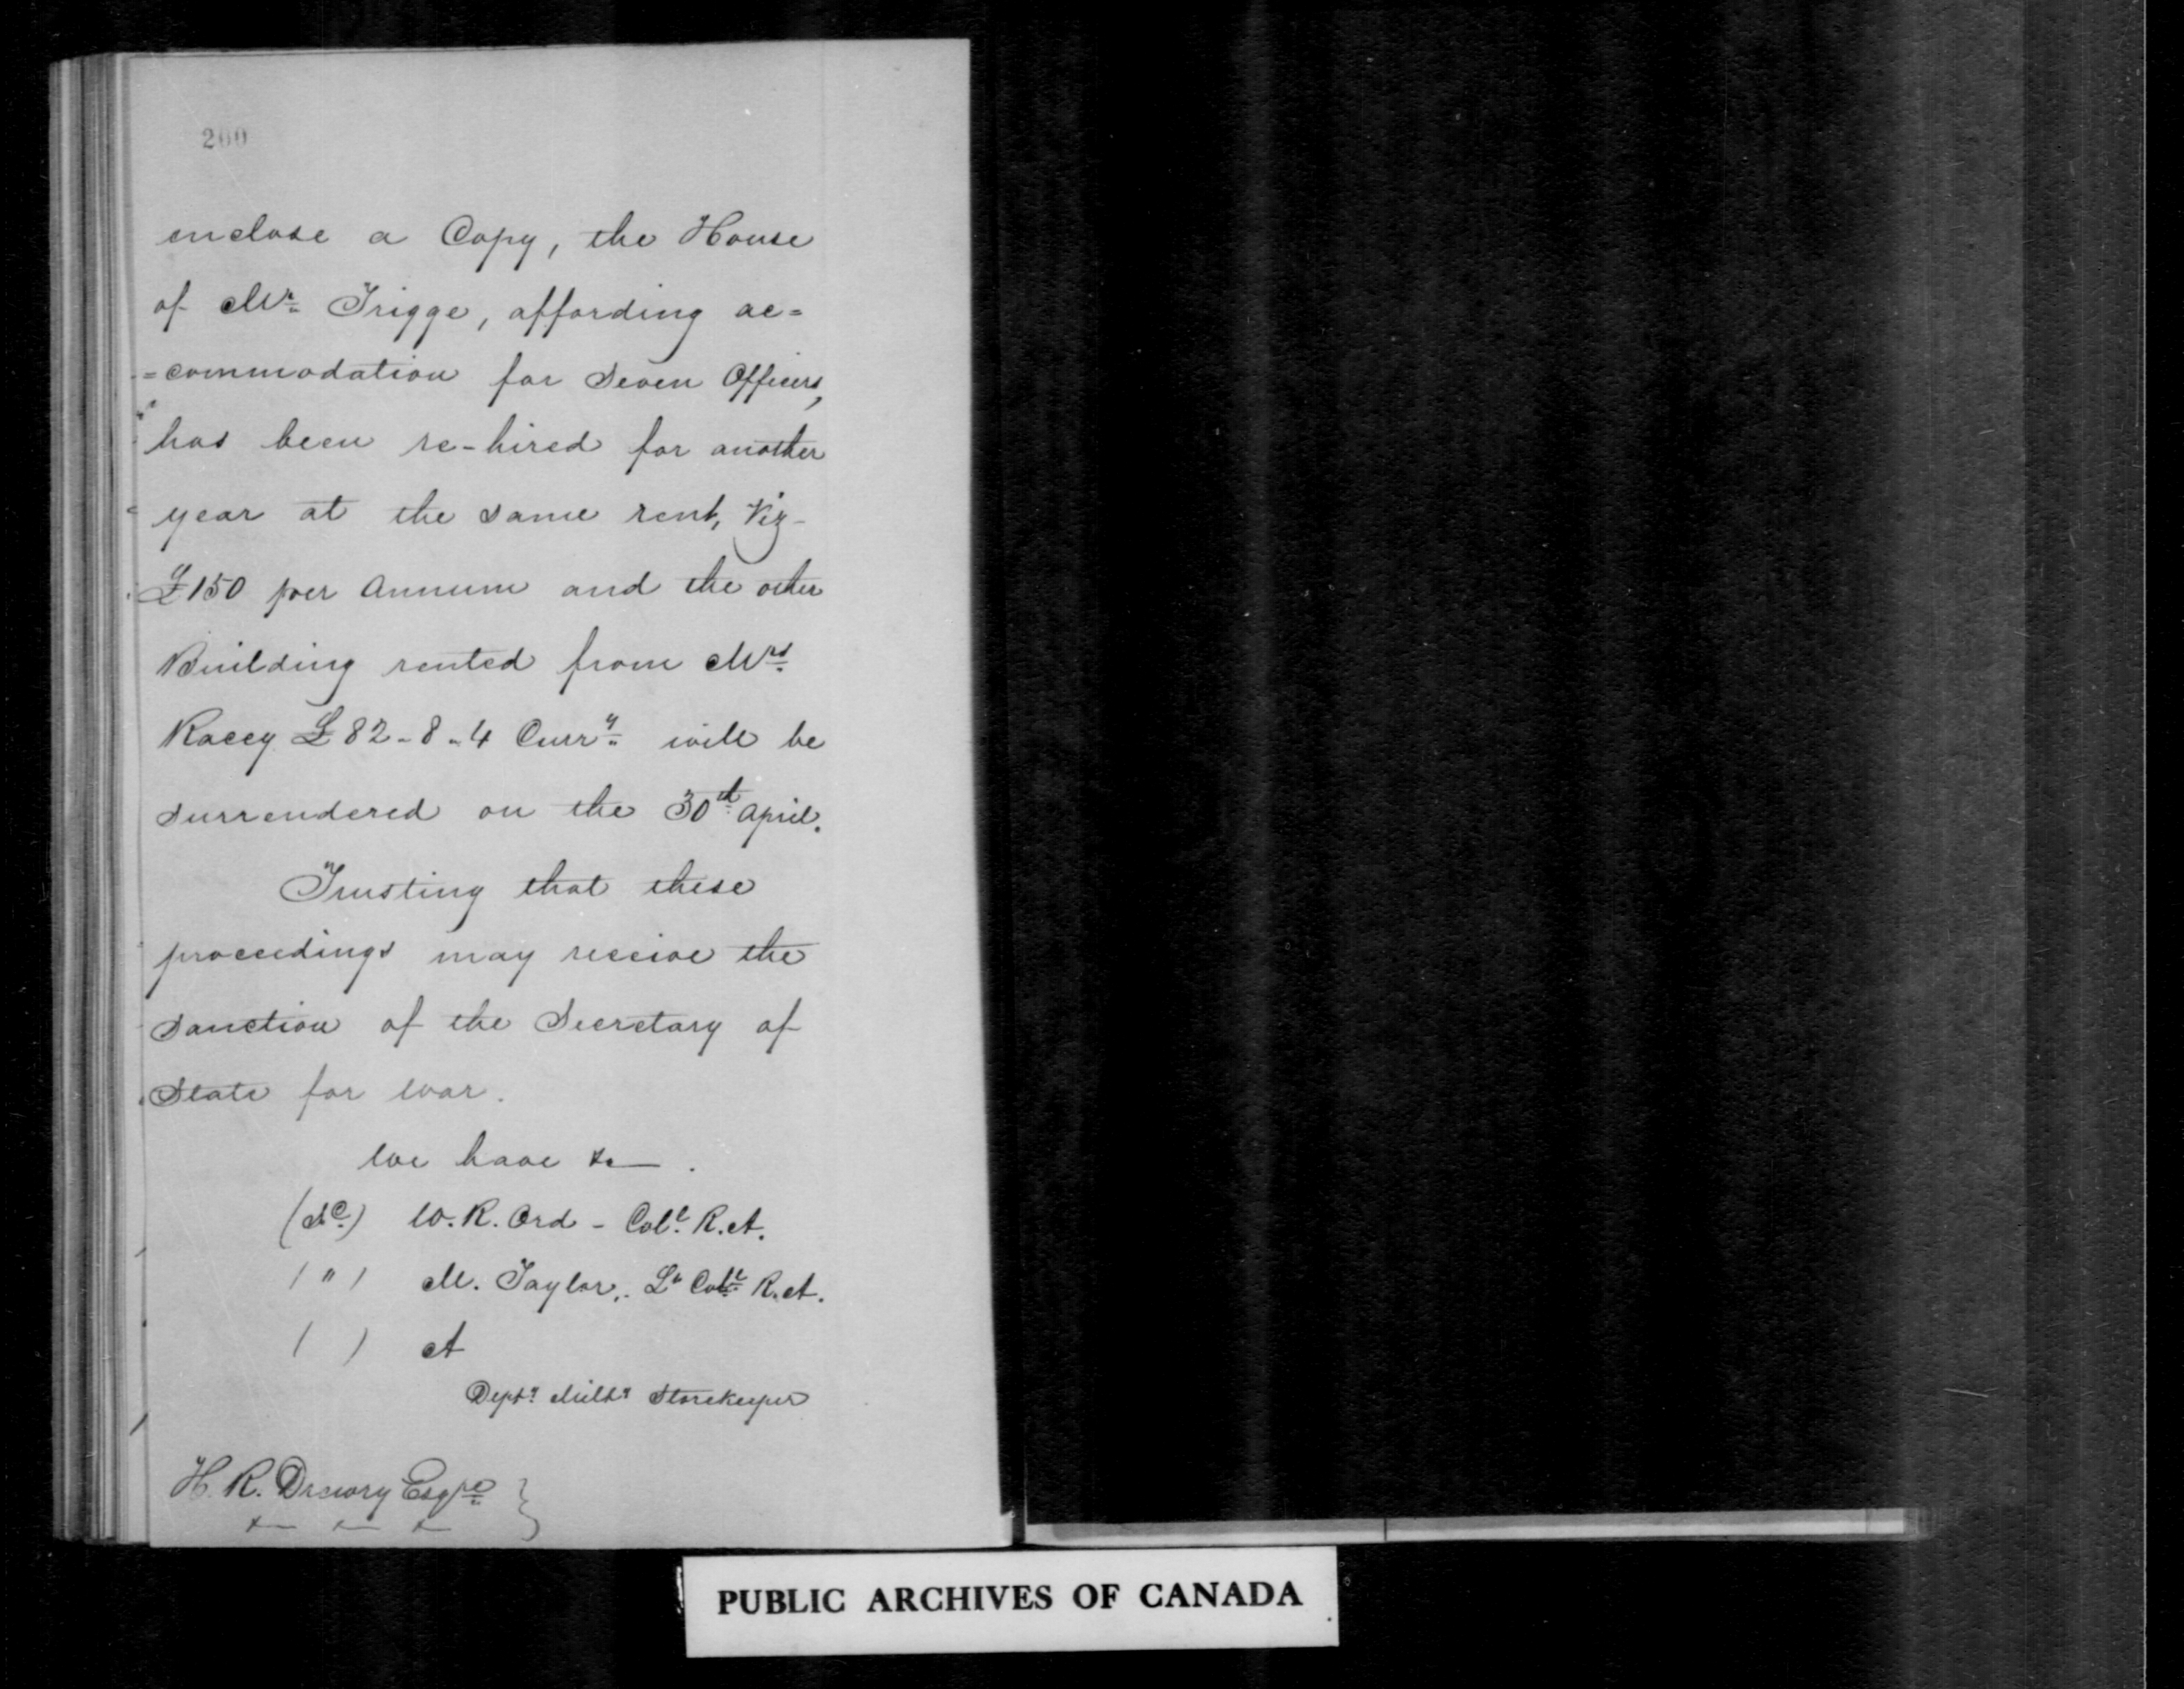 200
enclose a Copy, the House
of Mr. Trigge, affording ac=
=commodation for Seven Officers,
has been re-hired for another
year at the same rent, Viz-
£150 per Annum and the other
Building rented from Mrs.
Racey £82-8-4 Curry. will be
surrendered on the 30th April.
Trusting that these
proceedings may receive the
sanction of the Secretary of
State for War.
We have &c.
W. R. Ord - Coll. R.A.
( " ) M. Taylor, Lt Coll. R.A.
( ) A
Depty. Milty Storekeeper
H. R. Drewry Esqre. }
PUBLIC ARCHIVES OF CANADA